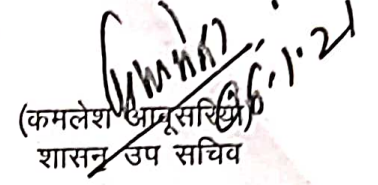 06.1.21
(कमलेश आबूसरिया)
शासन उप सचिव